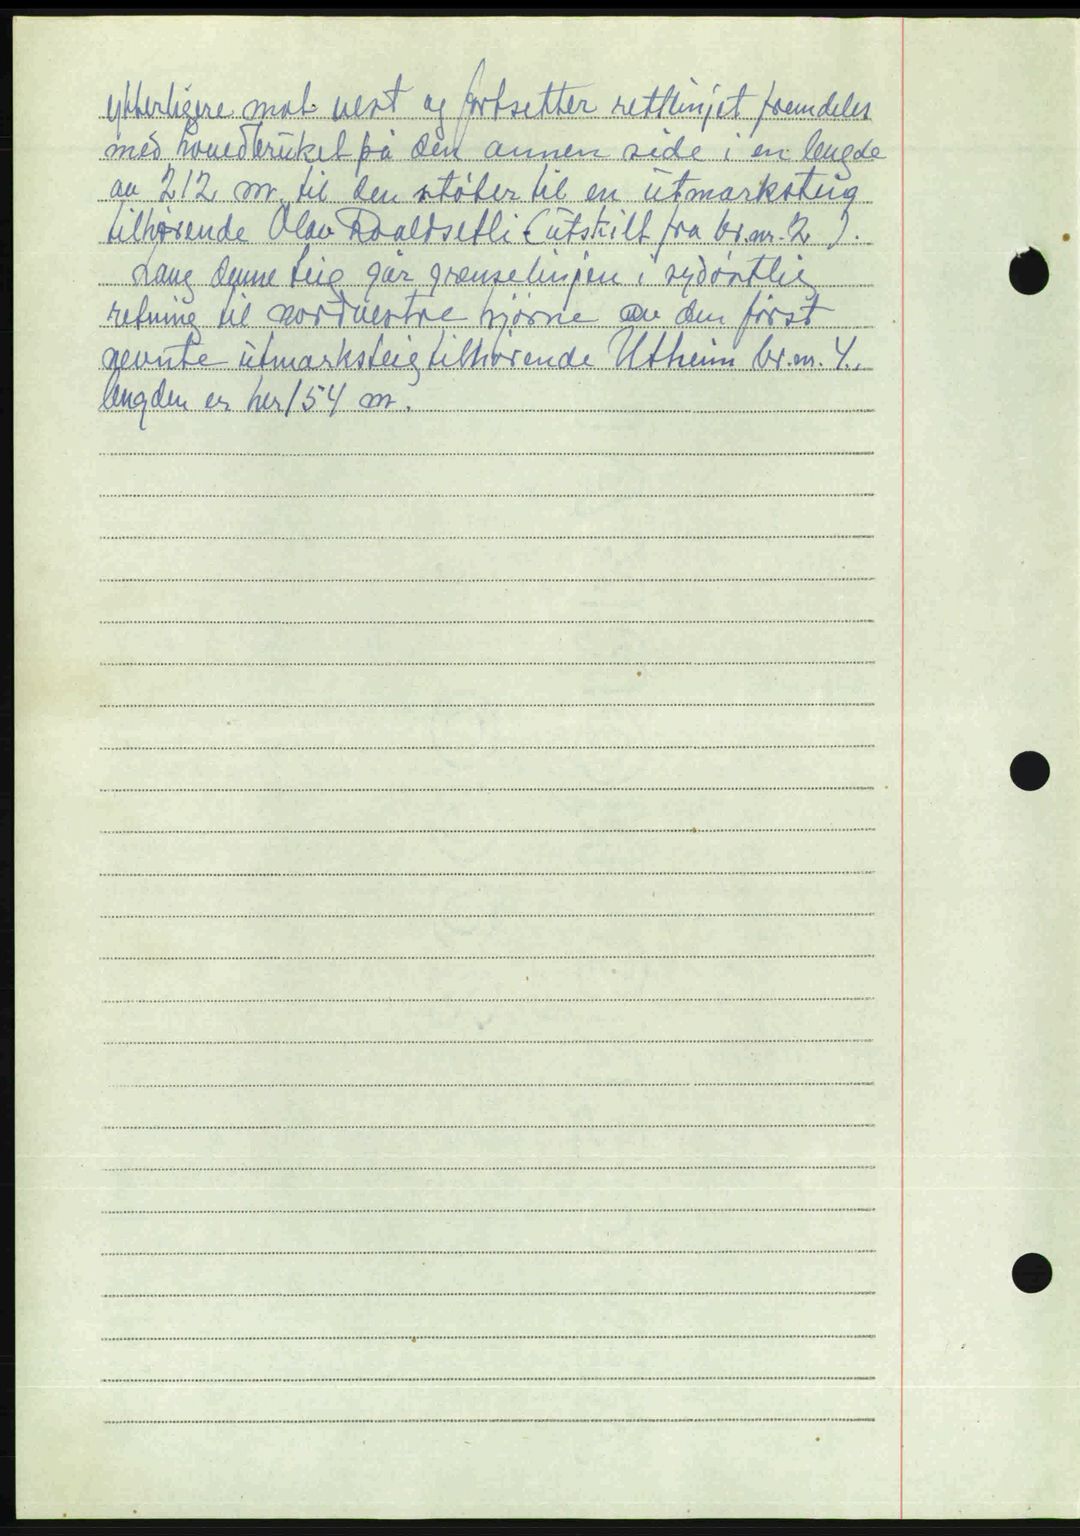 ytterligere mot vest og fortsetter rettlinjet fremdeles
med hovedbruket på den annen side i en lengde
av 212 m. til den støter til en utmarksteig
tilhørende Olav Roaldsetli (utskilt fra br.nr. 2 ).
Lang denne teig går grenselinjen i sydøstlig
retning til nordvestre hjørne av den først
nevnte utmarksteig tilhørende Utheim br.nr. 4.,
lengden er her 154 m.